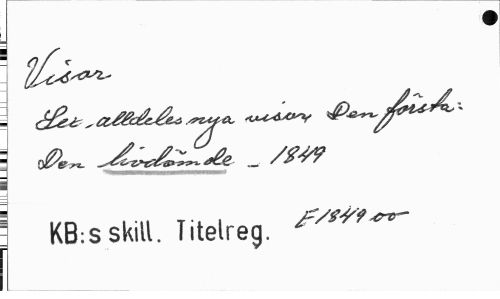 Visor
Sex alldeles nya visor, Den första:
Den livdömde - 1849
KB:s skill. Titelreg. E1849 oo